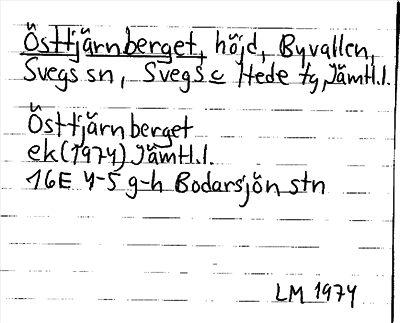 Östtjärnberget, höjd, Byvallen,
Svegs sn, Svegs c Hede tg, Jämtl.l.
Östtjärnberget
ek (1974) Jämtl.l.
16E 4-5 g-h Bodarsjön stn
LM 1974